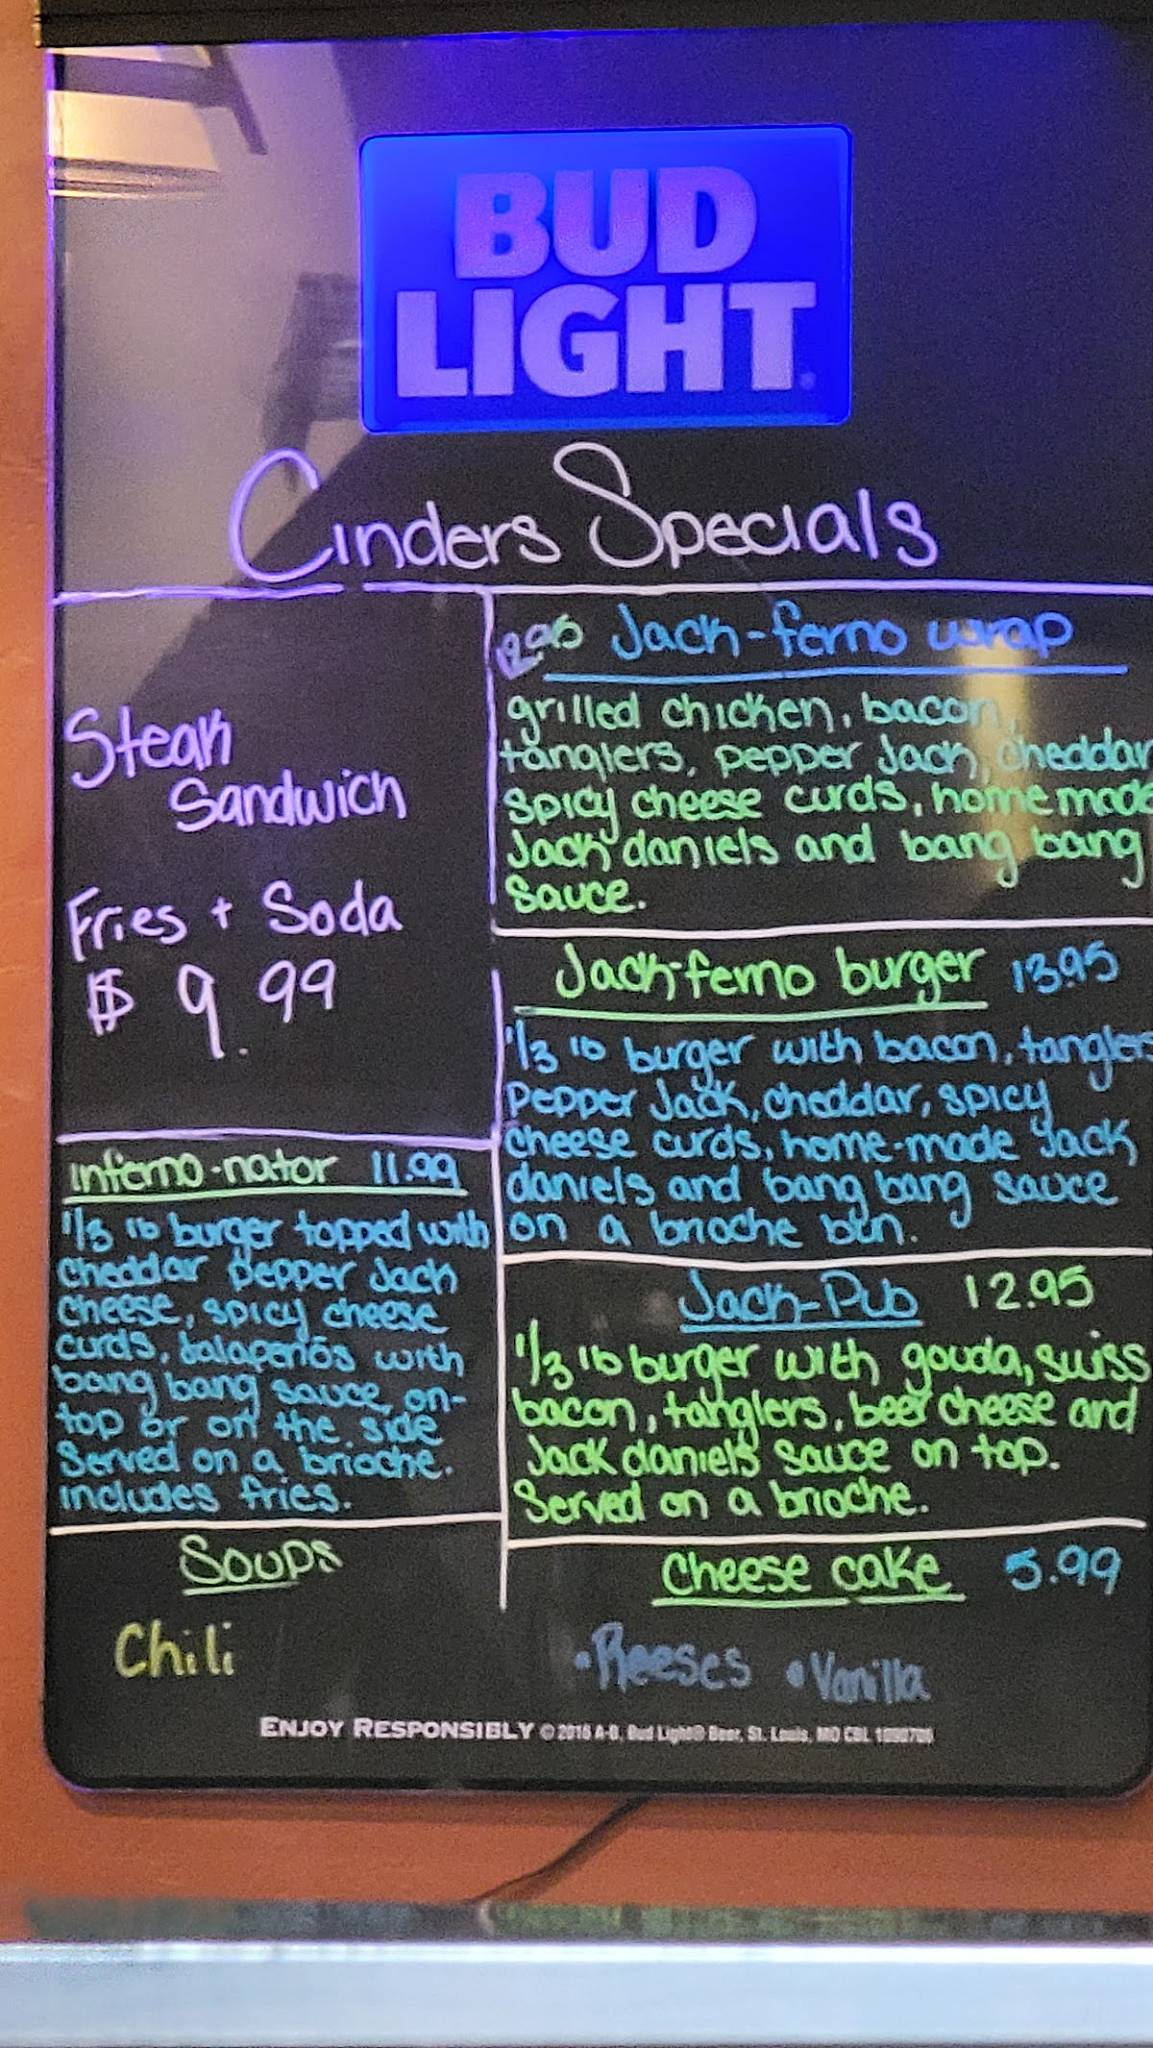 BUD
LIGHT
Cinders Specials
Steak
Sandwich
Fries + Soda
$ 9.99
Inferno-nator 11.99
1/3 lb burger topped with
cheddar pepper Jack
cheese, spicy cheese
curds, Jalapeños with
bang bang sauce, on-
top or on the side
Served on a brioche.
includes fries.
Soups
Chili
12.95 Jack-ferno wrap
grilled chicken, bacon,
tanglers, pepper Jack, cheddar
spicy cheese curds, homemade
Jack daniels and bang bang
sauce.
Jack-ferno burger 13.95
1/3 lb burger with bacon, tanglers
pepper Jack, cheddar, spicy
cheese curds, home-made Jack
daniels and bang bang sauce
on a brioche bun.
Jack-Pub 12.95
1/3 lb burger with gouda, swiss
bacon, tanglers, beer cheese and
Jack daniels sauce on top.
Served on a brioche.
Cheese cake 5.99
• Reeses • Vanilla
ENJOY RESPONSIBLY © 2016 A-B, Bud Light® Beer, St. Louis, MO